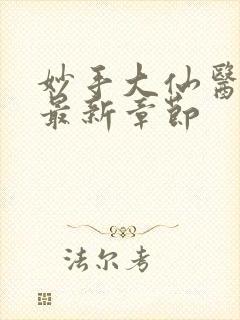 妙手大仙醫
最新章節
法尔考